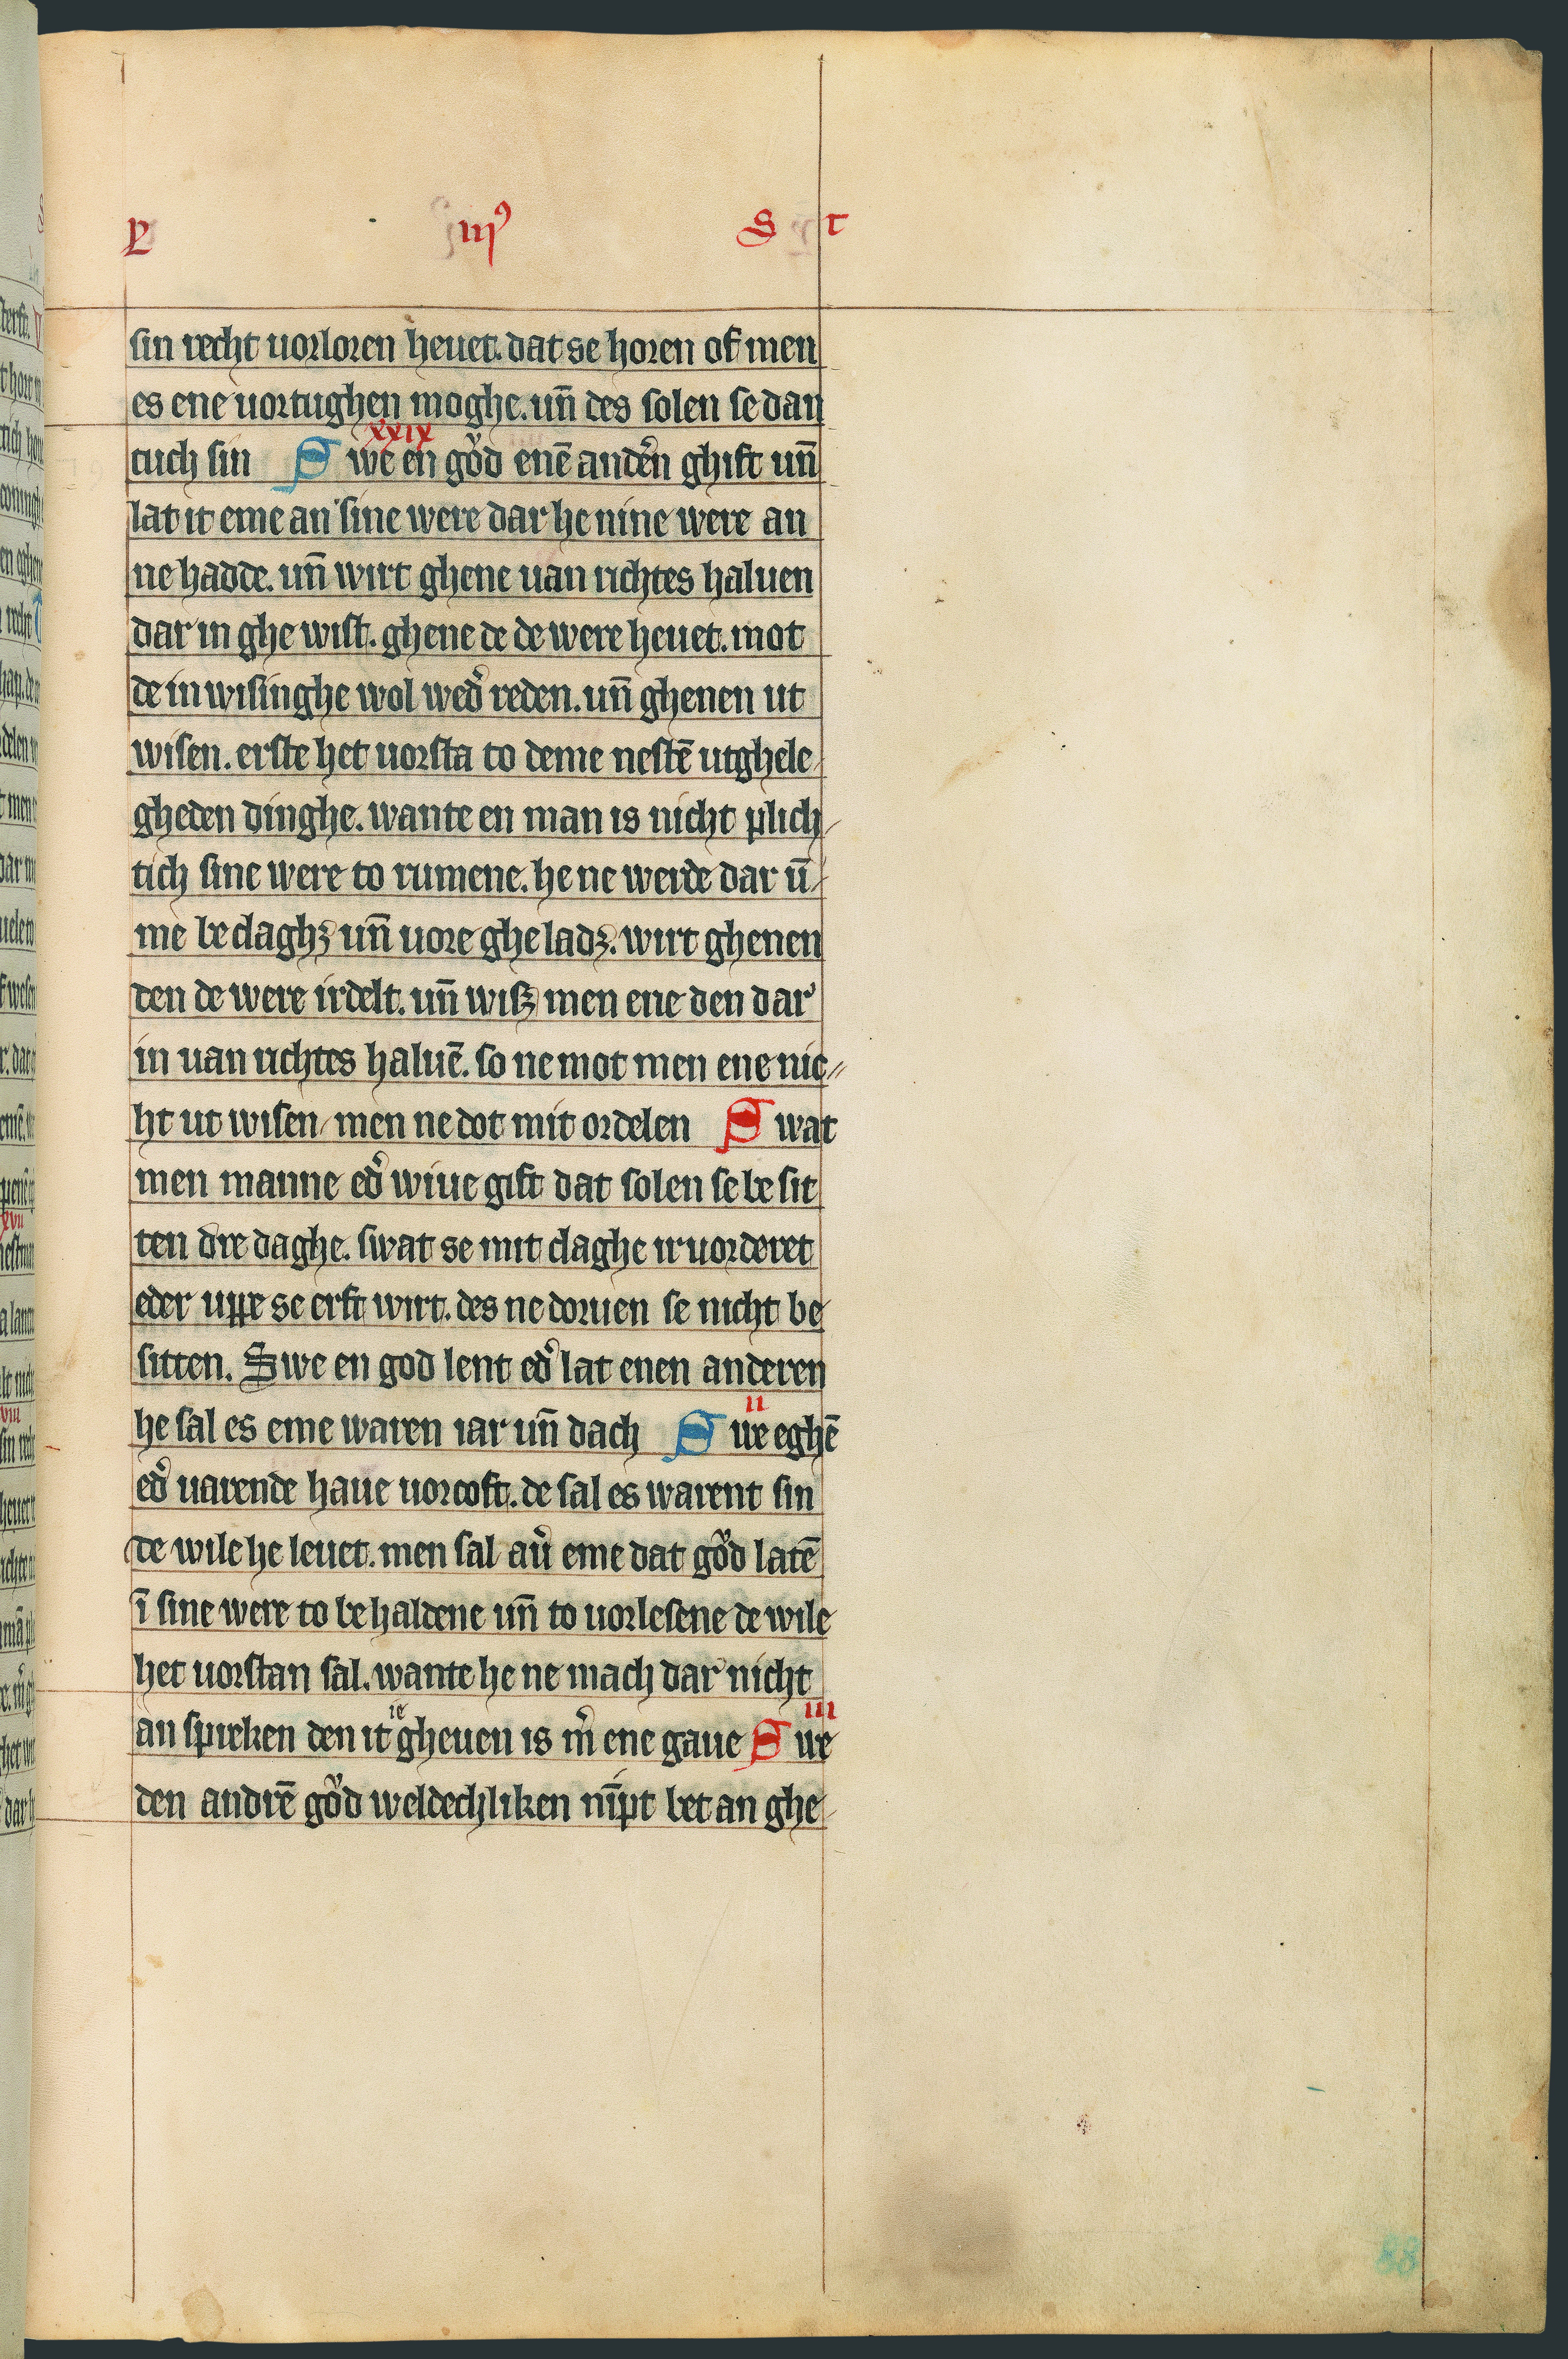 iiıꝰ S t
sin recht uorloren heuet. dat se horen of men
es ene uortughen moghe. un̄ des solen se dan
tuch sin xxix Swe en gůd enē anden̉ ghift un̄
lat it eme an sine were dar he nine were an
ne hadde. un̄ wirt ghene uan richtes haluen
dar in ghe wist. ghene de de were heuet. mot
de in wisinghe wol wed̉ reden. un̄ ghenen ut
wisen. erste het uorsta to deme nestē utghele
gheden dinghe. wante en man is nicht plich
tich sine were to rumene. he ne werde dar ū
me be claghꝫ un̄ uore ghe ladꝫ. wirt ghenen
den de were irdelt. un̄ wisꝫ men ene den dar
in uan richtes haluē. so ne mot men ene nic
ht ut wisen / men ne dot mit ordelen Swat
men manne ed̉ wiue gift dat solen se be sit
ten dre daghe. swat se mit claghe ir uorderet
eder uppe se erft wirt. des ne doruen se nicht be
sitten. Swe en god lent ed̉ lat enen anderen
he sal es eme waren iar un̄ dach ii Sue eghē
ed̉ uarende haue uorcoft. de sal es warent sin
de wile he leuet. men sal aủ eme dat gůd latē
ī sine were to be haldene un̄ to uorlesene de wile
het uorstan sal. wante he ne mach dar nicht
an spreken den it ie gheuen is m̉ ene gaue iii Sue
den andrē gůd weldechliken nīpt bet an ghe
88